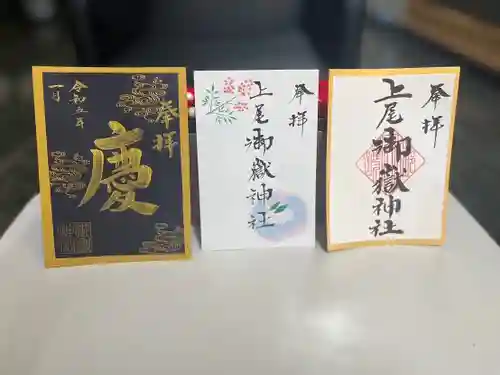 奉拝
慶
令和五年
一月
奉拝
上尾御嶽神社
奉拝
上尾御嶽神社